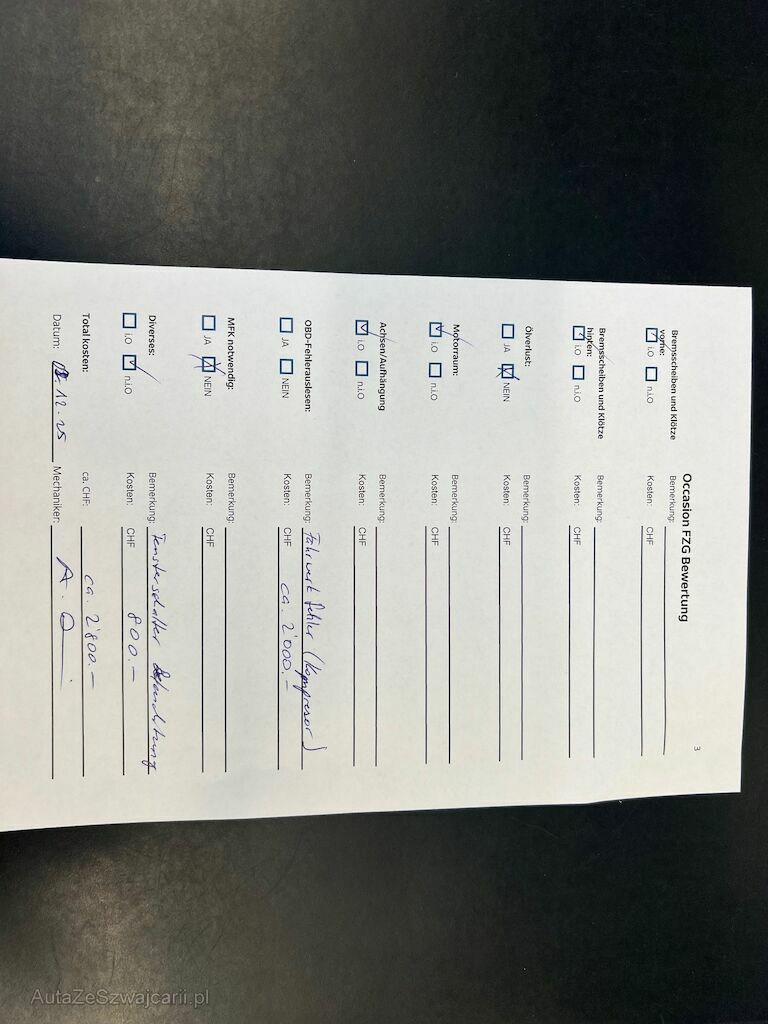 3
Occasion FZG Bewertung
Bremsscheiben und Klötze
vorne:
i.O n.i.O
Bemerkung:
Kosten: CHF
Bremsscheiben und Klötze
hinten:
i.O n.i.O
Bemerkung:
Kosten: CHF
Ölverlust:
JA NEIN
Bemerkung:
Kosten: CHF
Motorraum:
i.O n.i.O
Bemerkung:
Kosten: CHF
Achsen/Aufhängung
i.O n.i.O
Bemerkung:
Kosten: CHF
OBD-Fehlerauslesen:
JA NEIN
Bemerkung: Fahrwerk fehler (Kompresor)
Kosten: CHF ca. 2'000.-
MFK notwendig:
JA NEIN
Bemerkung:
Kosten: CHF
Diverses:
i.O n.i.O
Bemerkung: Fensterschalter Beleuchtung
Kosten: CHF 800.-
Total kosten: ca. CHF: ca. 2'800.-
Datum: 12.25 Mechaniker:
AutaZeSzwajcarii.pl